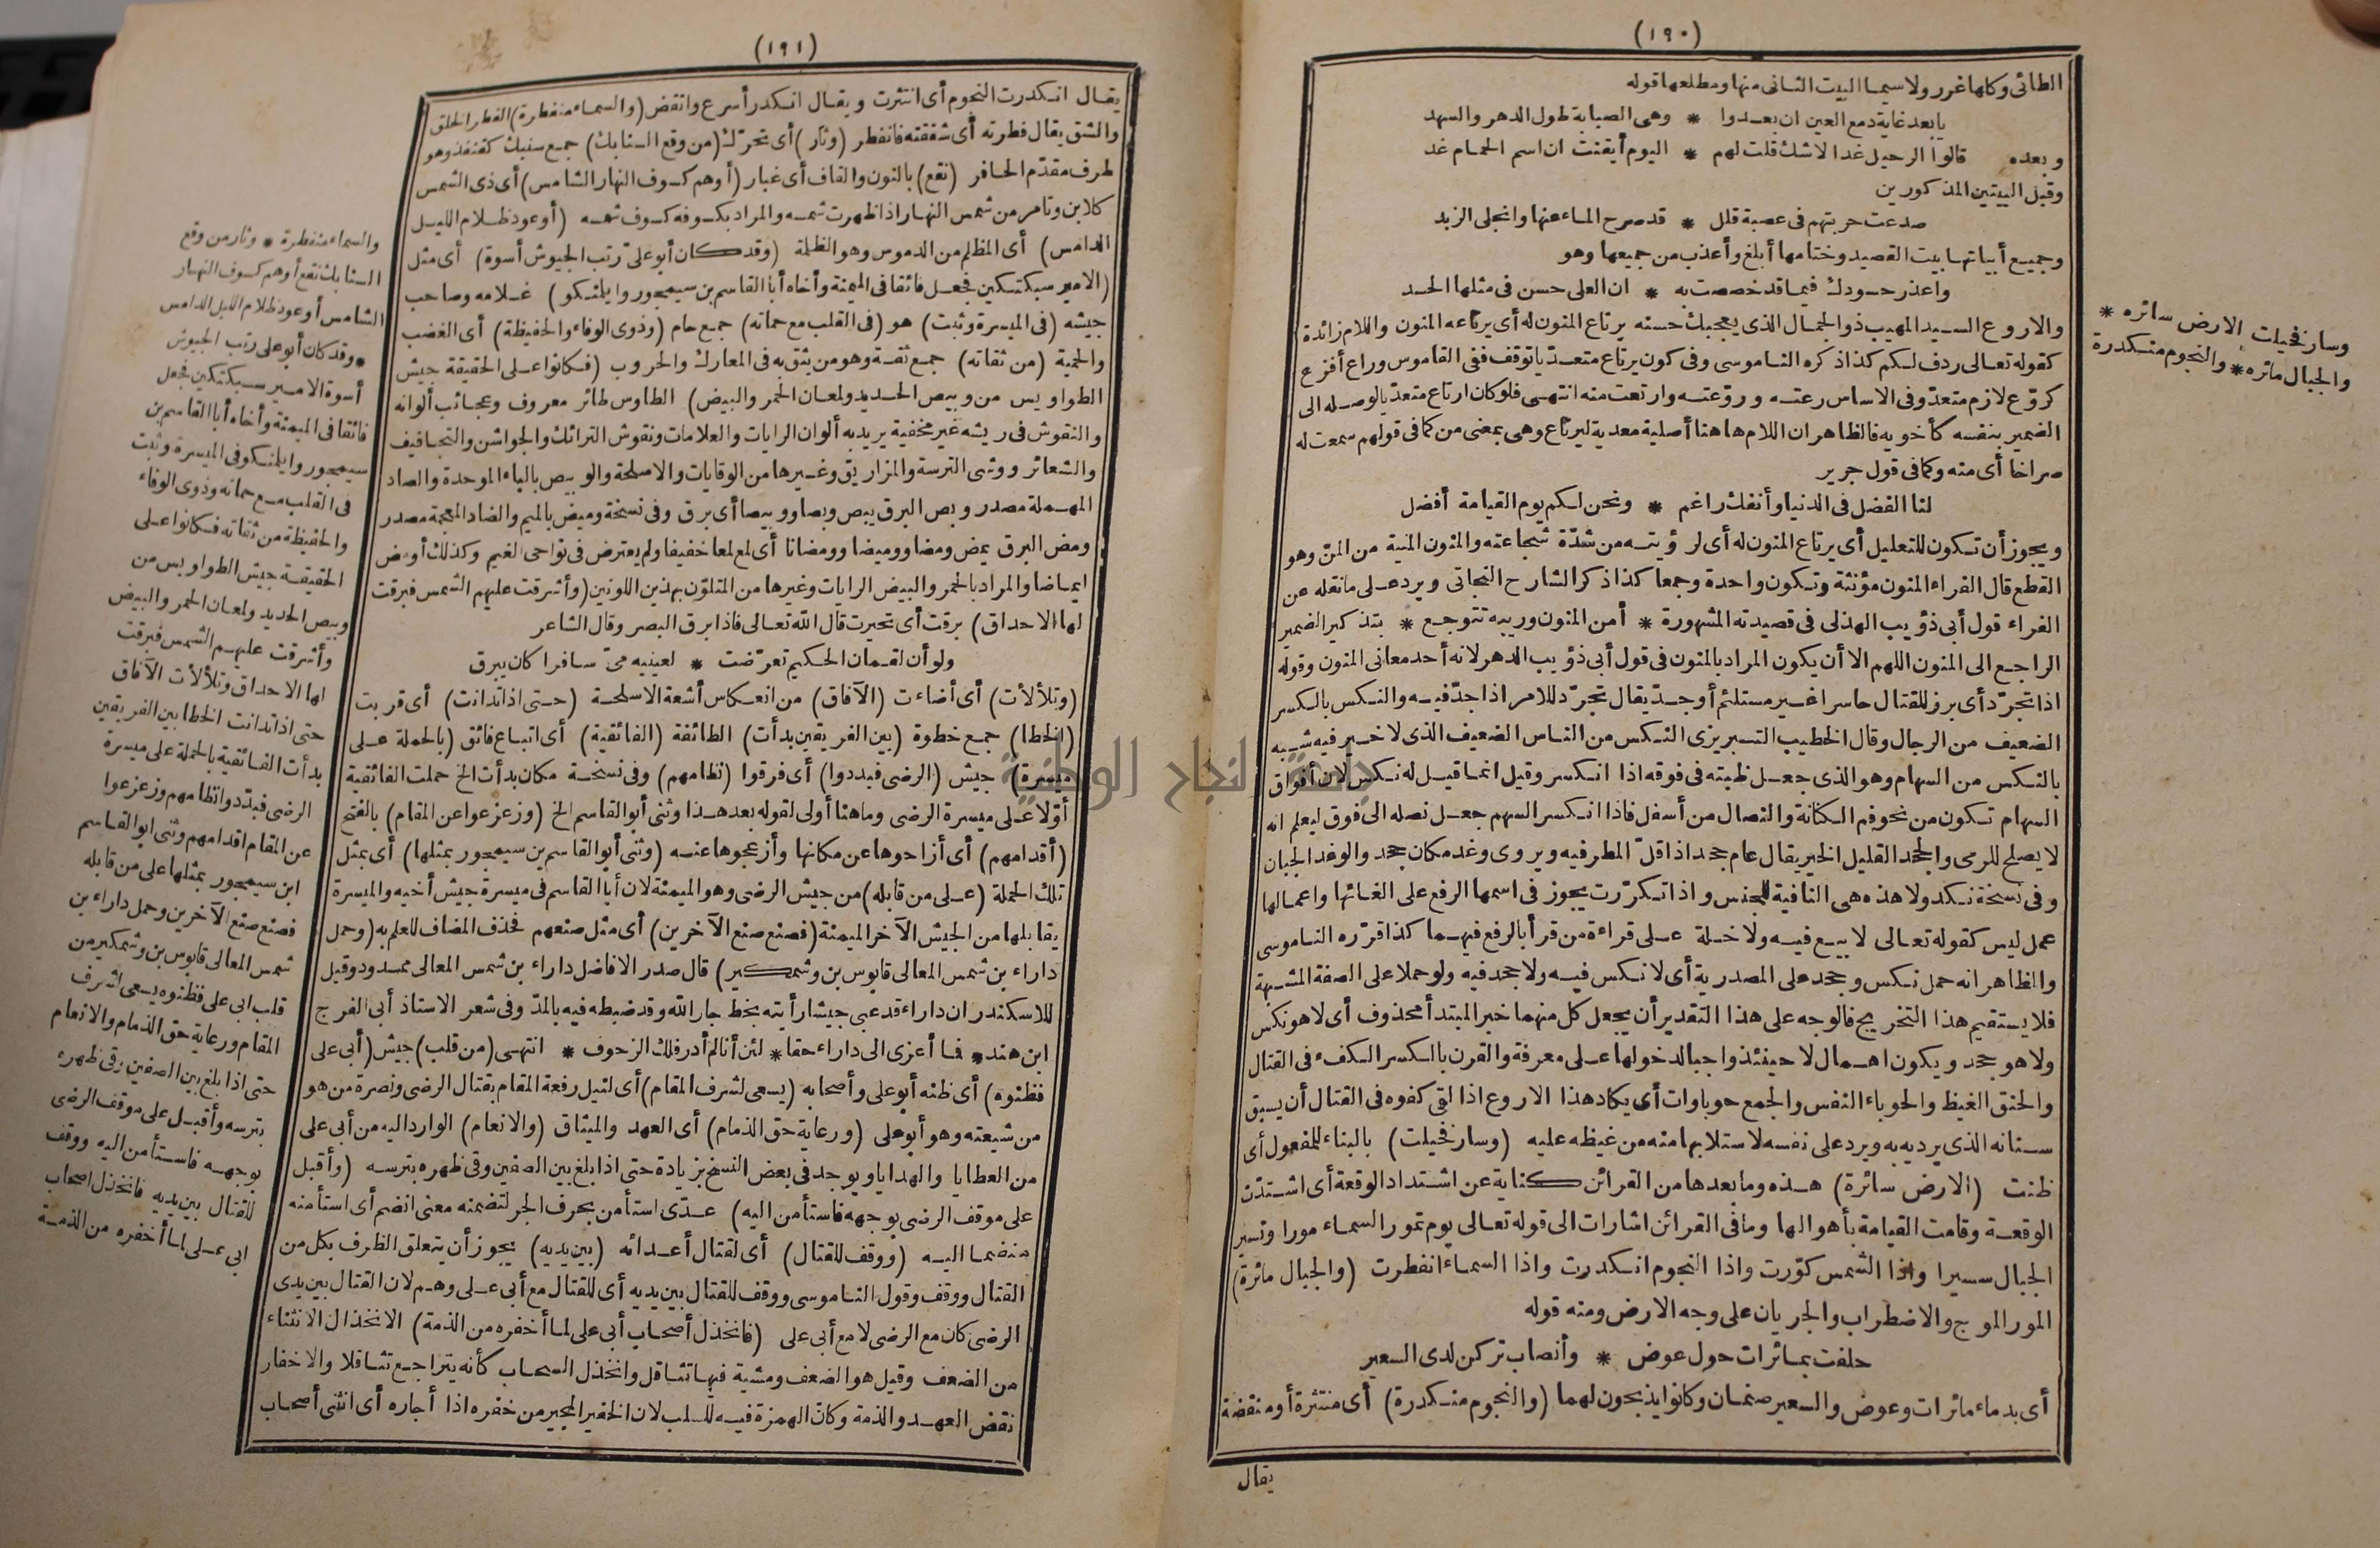 (١٩٠)
الطائى وكلها غرر ولا سيما البيت الثانى منها ومطلعها قوله
يا بعد غاية دمع العين ان بعدوا * وهى الصبابة طول الدهر والسهد
وبعده قالوا الرحيل غدا لا شك قلت لهم * اليوم أيقنت ان اسم الحمام غد
وقبل البيتين المذكورين
صدعت جريتهم فى عصبة قلل * قد صرح الماء عنها وانجلى الزبد
وجميع أبياتها بيت القصيد وختامها أبلغ وأعذب من جميعها وهو
واعذر حسودك فيما قد خصصت به * ان العلى حسن فى مثلها الحسد
والاروع السيد المهيب ذو الجمال الذى يعجبك حسنه يرتاع المنون له أى يرتاعه المنون واللام زائدة
كقوله تعالى ردف لكم كذا ذكره الناموسى وفى كون يرتاع متعدّيا توقف ففى القاموس وراع أفزع
كروّع لازم متعدّ وفى الاساس رعته وروّعته وارتعت منه انتهى فلو كان ارتاع متعدّيا لوصله الى
الضمير بنفسه كأخويه فالظاهر ان اللام هاهنا أصلية معدية ليرتاع وهى بمعنى من كما فى قولهم سمعت له
صراخا أى منه وكما فى قول جرير
لنا الفضل فى الدنيا وأنفك راغم * ونحن لكم يوم القيامة أفضل
ويجوز أن تكون للتعليل أى يرتاع المنون له أى لرؤيته من شدّة شجاعته والمنون المنية من المنّ وهو
القطع قال الفراء المنون مؤنثة وتكون واحدة وجمعا كذا ذكر الشارح النجاتى ويرد على ما نقله عن
الفراء قول أبى ذؤيب الهذلى فى قصيدته المشهورة * أمن المنون وريبه تتوجع * بتذكير الضمير
الراجع الى المنون اللهم الا أن يكون المراد بالمنون فى قول أبى ذؤيب الدهر لانه أحد معانى المنون وقوله
اذا تجرّد أى برز للقتال حاسرا غير مستلئم أوجدّ يقال تجرّد للامر اذا جدّ فيه والنكس بالكسر
الضعيف من الرجال وقال الخطيب التبريزى النكس من الناس الضعيف الذى لا خير فيه شبه
بالنكس من السهام وهو الذى جعل ظبته فى فوقه اذا انكسر وقيل انما قيل له نكس لان أفواق
السهام تكون من نحو فم الكنانة والنصال من أسفل فاذا انكسر السهم جعل نصله الى فوق ليعلم انه
لا يصلح للرمى والجحد القليل الخير يقال عام جحد اذا قلّ المطر فيه ويروى وغد مكان جحد والوغد الجبان
وفى نسخة نكد ولا هذه هى النافية للجنس واذا تكرّرت يجوز فى اسمها الرفع على الغائها واعمالها
عمل ليس كقوله تعالى لا بيع فيه ولا خلة على قراءة من قرأ بالرفع فيهما كذا قرّره الناموسى
والظاهر انه حمل نكس وجحد على المصدرية أى لا نكس فيه ولا جحد فيه ولو حملا على الصفة المشبهة
فلا يستقيم هذا التخريج فالوجه على هذا التقدير أن يجعل كل منهما خبر المبتدأ محذوف أى لا هو نكس
ولا هو جحد ويكون اهمال لا حينئذ واجبا لدخولها على معرفة والقرن بالكسر الكفء فى القتال
والحنق الغيظ والحوباء النفس والجمع حوباوات أى يكاد هذا الاروع اذا لقى كفوه فى القتال أن يسبق
سنانه الذى يرديه به ويرد على نفسه لاستلابها منه من غيظه عليه (وسار فخيلت) بالبناء للمفعول أى
ظنت (الارض سائرة) هذه وما بعدها من القرائن كناية عن اشتداد الوقعة أى اشتدّت
الوقعة وقامت القيامة بأهوالها وما فى القرائن اشارات الى قوله تعالى يوم تمور السماء مورا وتسير
الجبال سيرا واذا الشمس كوّرت واذا النجوم انكدرت واذا السماء انفطرت (والجبال مائرة)
المور الموج والاضطراب والجريان على وجه الارض ومنه قوله
حلفت بمائرات حول عوض * وأنصاب تركن لدى السعير
أى بدماء مائرات وعوض والسعير صنمان وكانوا يذبحون لهما (والنجوم منكدرة) أى منتثرة أو منقضة
يقال
وسار فخيلت الارض سائره *
والجبال مائره * والنجوم منكدرة
(١٩١)
يقال انكدرت النجوم أى انتثرت ويقال انكدر أسرع وانقض (والسماء منفطرة) الفطر الخلق
والشق يقال فطرته أى شققته فانفطر (وثار) أى تحرّك (من وقع السنابك) جمع سنبك كقنفذ وهو
طرف مقدّم الحافر (نقع) بالنون والقاف أى غبار (أوهم كسوف النهار الشامس) أى ذى الشمس
كلابن وتامر من شمس النهار اذا ظهرت شمسه والمراد بكسوفه كسوف شمسه (أو عود ظلام الليل
الدامس) أى المظلم من الدموس وهو الظلمة (وقد كان أبو علىّ رتب الجيوش أسوة) أى مثل
(الامير سبكتكين فجعل فائقا فى الميمنة وأخاه أبا القاسم بن سيمجور وايلمنكو) غلامه وصاحب
جيشه (فى الميسرة وثبت) هو (فى القلب مع حماته) جمع حام (وذوى الوفاء والحفيظة) أى الغضب
والحمية (من ثقاته) جمع ثقة وهو من يثق به فى المعارك والحروب (فكانوا على الحقيقة جيش
الطواويس من وبيص الحديد ولمعان الحمر والبيض) الطاوس طائر معروف وعجائب ألوانه
والنقوش فى ريشه غير مخفية يريد به ألوان الرايات والعلامات ونقوش الترائك والجواشن والتجافيف
والشعائر ووشى الترسة والمزاريق وغيرها من الوقايات والاسلحة والوبيص بالباء الموحدة والصاد
المهملة مصدر وبص البرق يبص وبصا ووبيصا أى برق وفى نسخة وميض بالميم والضاد المعجمة مصدر
ومض البرق يمض ومضا ووميضا وومضانا أى لمع لمعا خفيفا ولم يعترض فى نواحى الغيم وكذلك أومض
ايماضا والمراد بالحمر والبيض الرايات وغيرها من المتلوّن بهذين اللونين (وأشرقت عليهم الشمس فبرقت
لها الاحداق) برقت أى تحيرت قال الله تعالى فاذا برق البصر وقال الشاعر
ولو أن لقمان الحكيم تعرّضت * لعينيه مىّ سافرا كان يبرق
(وتلألأت) أى أضاءت (الآفاق) من انعكاس أشعة الاسلحة (حتى اذا تدانت) أى قربت
(الخطا) جمع خطوة (بين الفريقين بدأت) الطائفة (الفائقية) أى اتباع فائق (بالحملة على
ميسرة) جيش (الرضى فبددوا) أى فرقوا (نظامهم) وفى نسخة مكان بدأت الخ حملت الفائقية
أوّلا على ميسرة الرضى وما هنا أولى لقوله بعد هذا وثنى أبو القاسم الخ (وزعزعوا عن المقام) بالفتح
(أقدامهم) أى أزاحوها عن مكانها وأزعجوها عنه (وثنى أبو القاسم بن سيمجور بمثلها) أى بمثل
تلك الحملة (على من قابله) من جيش الرضى وهو الميمنة لان أبا القاسم فى ميسرة جيش أخيه والميسرة
يقابلها من الجيش الآخر الميمنة (فصنع صنع الآخرين) أى مثل صنعهم فحذف المضاف للعلم به (وحمل
داراء بن شمس المعالى قابوس بن وشمكير) قال صدر الافاضل داراء بن شمس المعالى ممدود وقيل
للاسكندر ان داراء قد عبى جيشا رأيته بخط جار الله وقد ضبطه فيه بالمدّ وفى شعر الاستاذ أبى الفرج
ابن هند * فما أعزى الى داراء حقا * لئن أنا لم أدر فلك الزحوف * انتهى (من قلب) جيش (أبى على
فظنوه) أى ظنه أبو على وأصحابه (يسعى لشرف المقام) أى لنيل رفعة المقام بقتال الرضى ونصرة من هو
من شيعته وهو أبو على (ورعاية حق الذمام) أى العهد والميثاق (والانعام) الوارد اليه من أبى على
من العطايا والهدايا ويوجد فى بعض النسخ بزيادة حتى اذا بلغ بين الصفين وقى ظهره بترسه (وأقبل
على موقف الرضى بوجهه فاستأمن اليه) عدّى استأمن بحرف الجر لتضمنه معنى انضم أى استأمنه
منضما اليه (ووقف للقتال) أى لقتال أعدائه (بين يديه) يجوز أن يتعلق الظرف بكل من
القتال ووقف وقول الناموسى ووقف للقتال بين يديه أى للقتال مع أبى على وهم لان القتال بين يدى
الرضى كان مع الرضى لا مع أبى على (فانخذل أصحاب أبى على لما أخفره من الذمة) الانخذال الانثناء
من الضعف وقيل هو الضعف ومشية فيها تثاقل وانخذل السحاب كأنه يتراجع تثاقلا والاخفار
نقض العهد والذمة وكانّ الهمزة فيه للسلب لان الخفير المجير من خفره اذا أجاره أى انثنى أصحاب
والسماء منفطرة * وثار من وقع
السنابك نقع أوهم كسوف النهار
الشامس أو عود ظلام الليل الدامس
* وقد كان أبو على رتب الجيوش
أسوة الامير سبكتكين فجعل
فائقا فى الميمنة وأخاه أبا القاسم بن
سيمجور وايلمنكو فى الميسرة وثبت
فى القلب مع حماته وذوى الوفاء
والحفيظة من ثقاته فكانوا على
الحقيقة جيش الطواويس من
وبيص الحديد ولمعان الحمر والبيض
وأشرقت عليهم الشمس فبرقت
لها الاحداق وتلألأت الآفاق
حتى اذا تدانت الخطا بين الفريقين
بدأت الفائقية بالحملة على ميسرة
الرضى فبدّدوا نظامهم وزعزعوا
عن المقام اقدامهم وثنى ابو القاسم
ابن سيمجور بمثلها على من قابله
فصنع صنع الآخرين وحمل داراء بن
شمس المعالى قابوس بن وشمكير من
قلب ابى على فظنوه يسعى لشرف
المقام ورعاية حق الذمام والانعام
حتى اذا بلغ بين الصفين وقى ظهره
بترسه وأقبل على موقف الرضى
بوجهه فاستأمن اليه ووقف
للقتال بين يديه فانخذل اصحاب
ابى على لما أخفره من الذمة
جامعة النجاح الوطنية